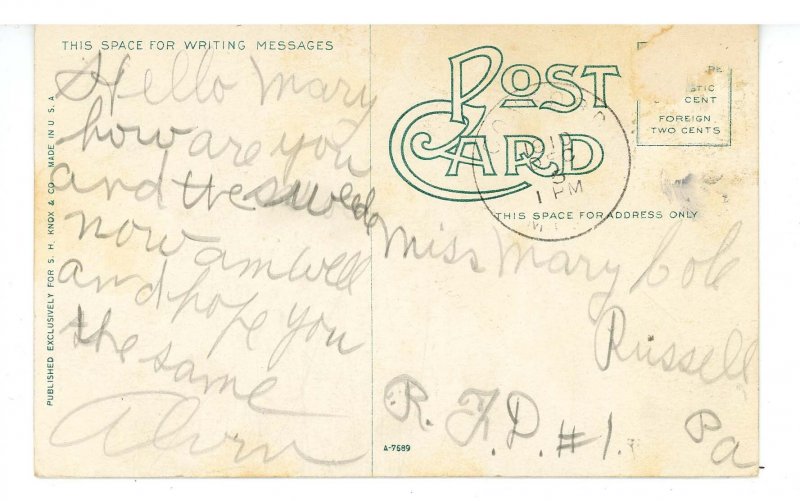 THIS SPACE FOR WRITING MESSAGES
Hello Mary
how are you
and the swede
now am well
and hope you
the same
Alvin
PUBLISHED EXCLUSIVELY FOR S. H. KNOX & CO. MADE IN U. S. A
POST
CARD
STIC
CENT
FOREIGN
TWO CENTS
1 PM
THIS SPACE FOR ADDRESS ONLY
Miss Mary Cole
Russell
R. F. D. #1.
Pa
A-7689